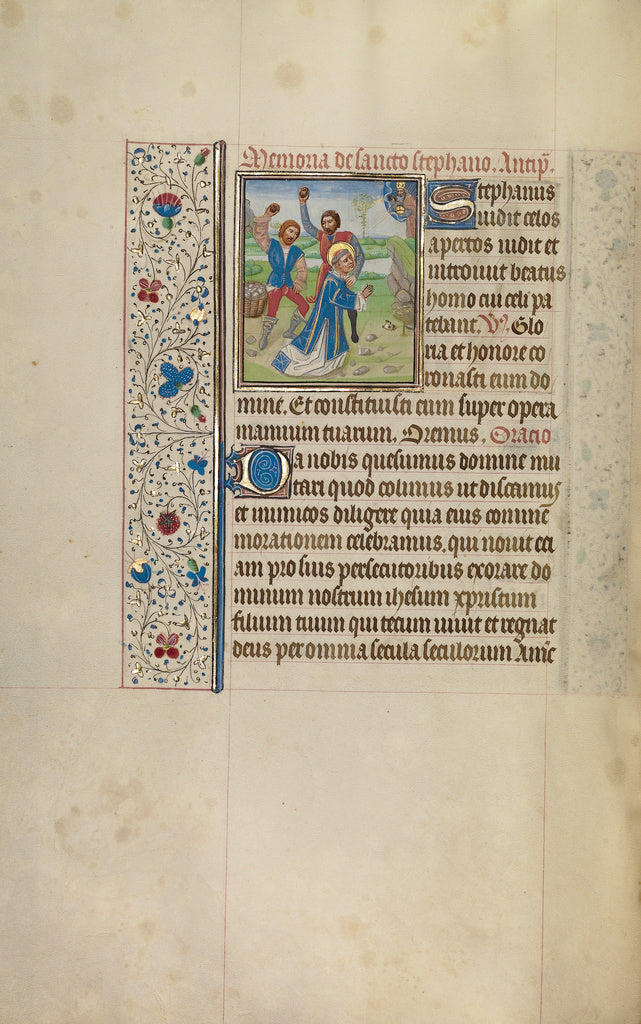 Memoria de sancto stephano. Antiph̃.
Stephanus
uidit celos
apertos uidit et
introiuit beatus
homo cui celi pa
tebant. V. Glo
ria et honore co
ronasti eum do
mine. Et constituisti eum super opera
manuum tuarum. Oremus. Oracio
Da nobis quesumus domine mu
tari quod colimus ut discamus
et inimicos diligere quia eius comme
morationem celebramus. qui nouit eci
am pro suis persecutoribus exorare do
minum nostrum ihesum xpristum
filium tuum qui tecum uiuit et regnat
deus per omnia secula seculorum Amē